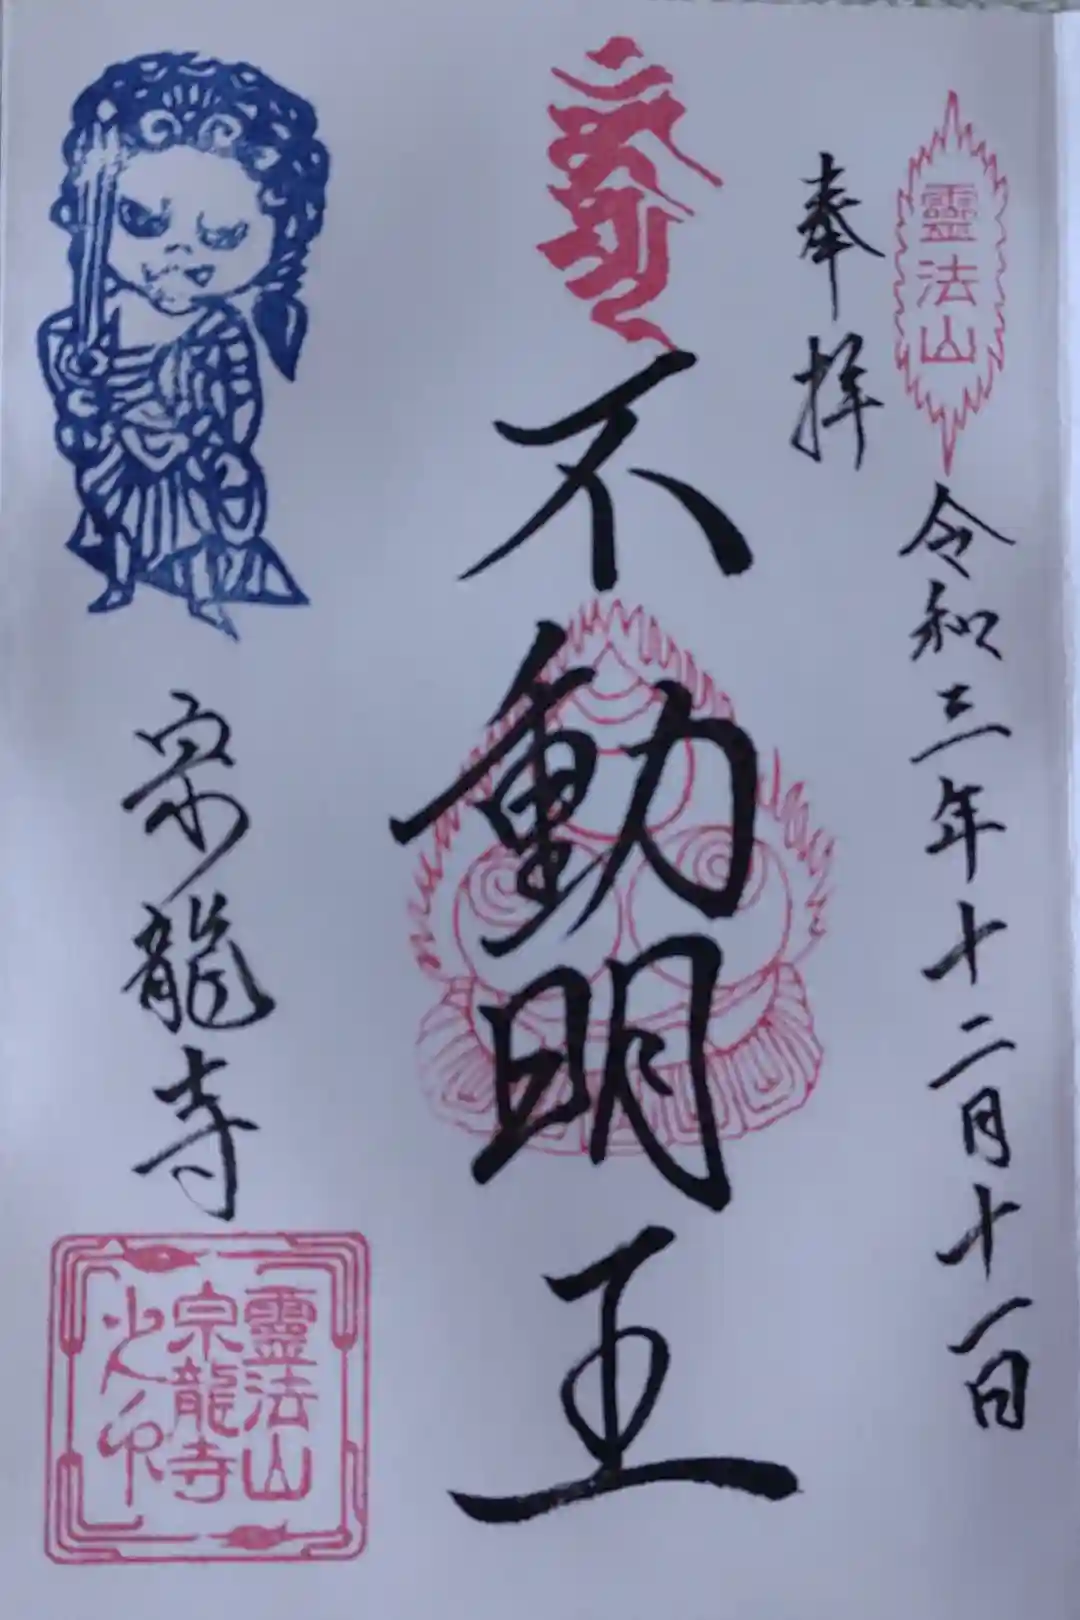 靈法山
奉拝
令和三年十二月十一日
不動明王
宗龍寺
靈法山
宗龍寺